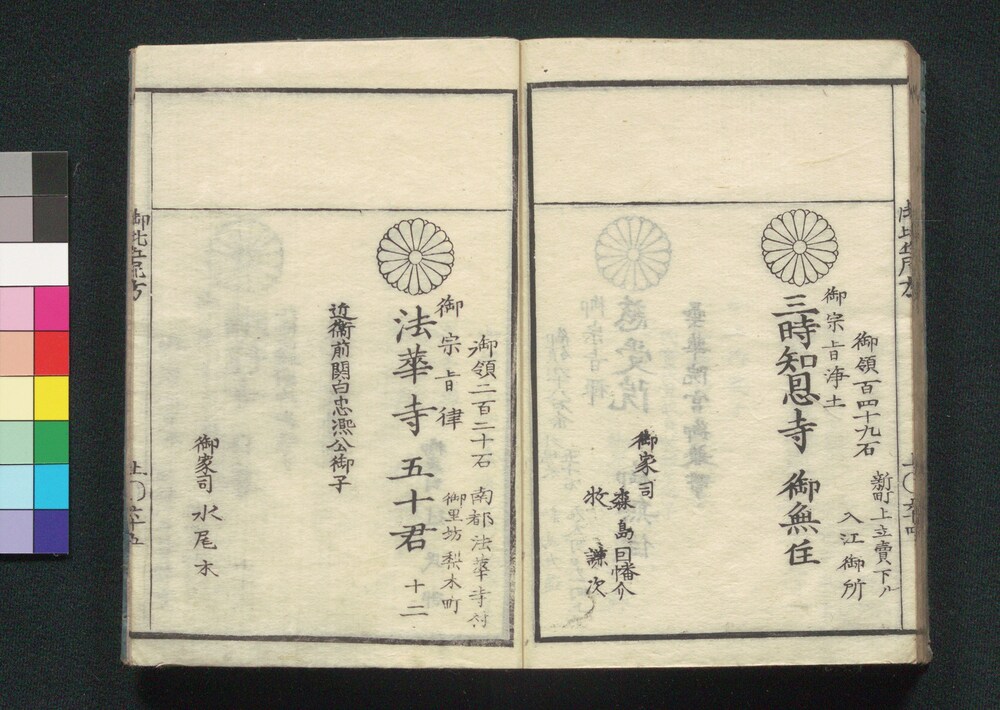 御領百四十九石
新町上立賣下ル
入江御所
御宗旨浄土
三時知恩寺 御無住
御家司
森島因幡介
牧 謙次
御領二百二十石
南都法華寺村
御里坊 梨木町
御宗旨 律
法華寺 五十君 十二
近衞前関白忠凞公御子
御家司 水尾木